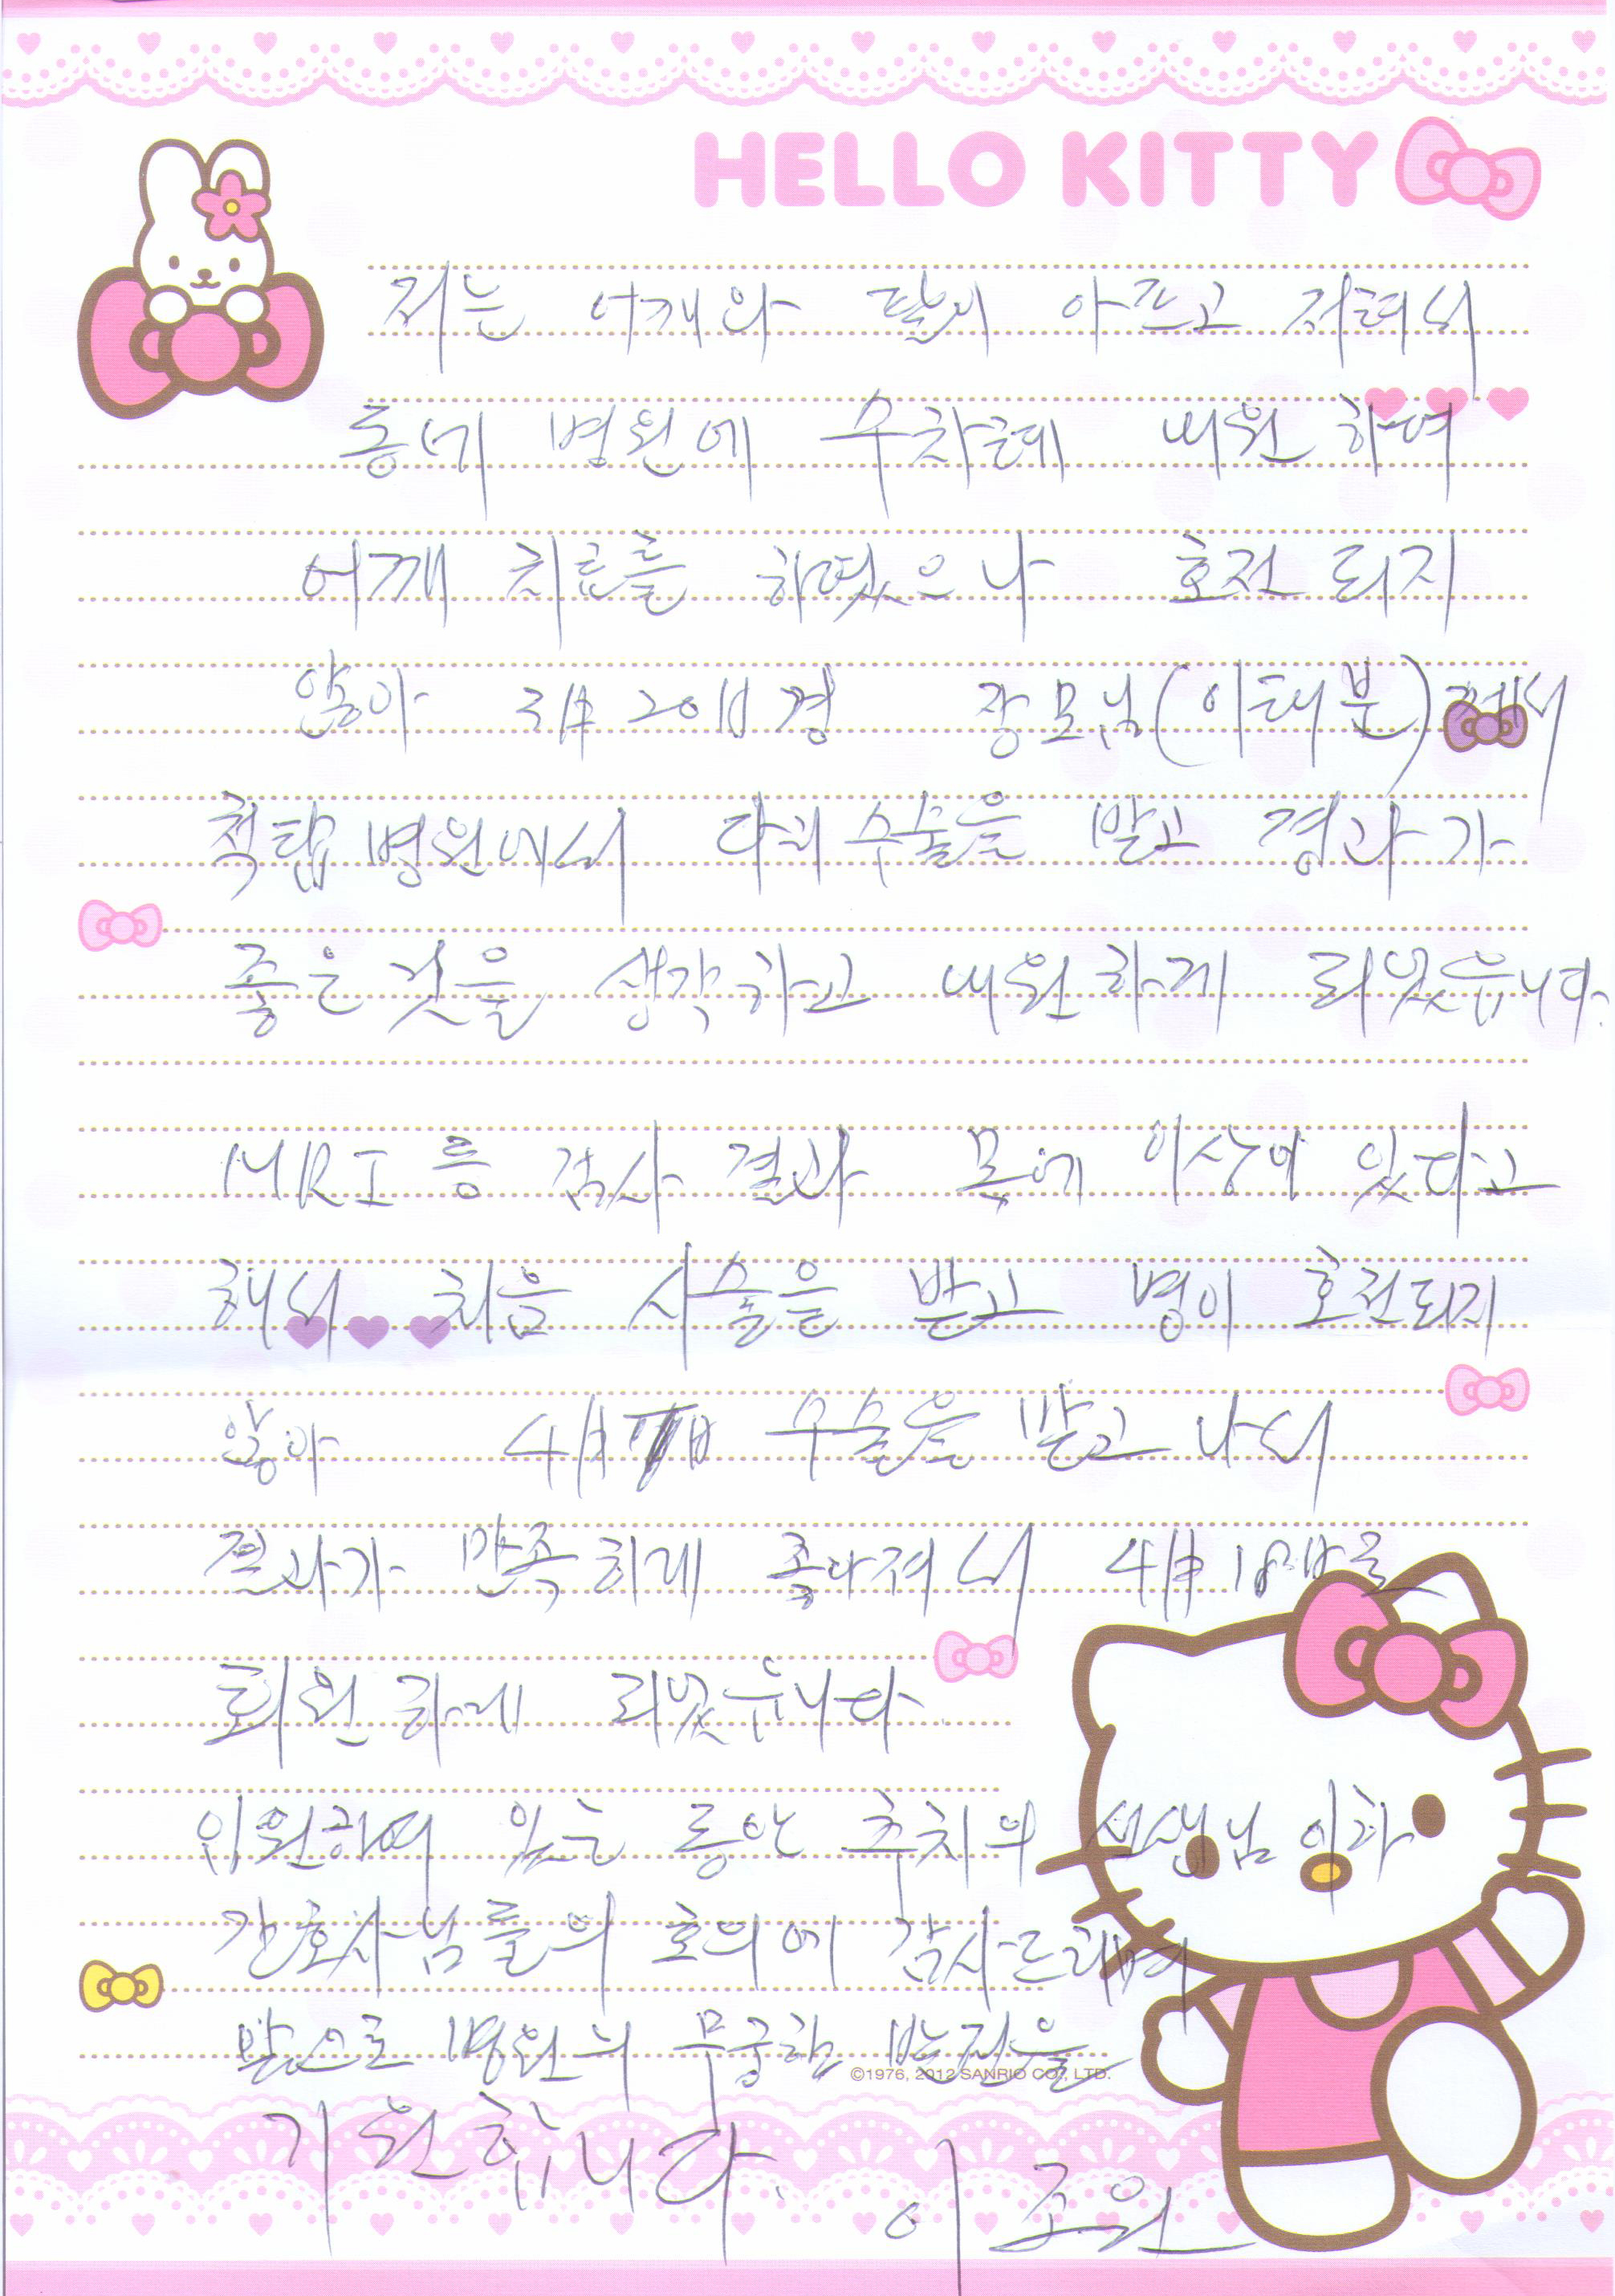 HELLO KITTY
저는 어깨와 팔이 아프고 저려서
동네 병원에 수차례 내원 하여
어깨 치료를 하였으나 호전 되지
않아 3月 20日경 장모님(이태분)께서
척탑병원에서 다리 수술을 받고 경과가
좋은것을 생각하고 내원하게 되었습니다.
MRI 등 검사 결과 목에 이상이 있다고
해서 처음 시술을 받고 병이 호전되지
않아 4月 日 수술을 받고 나서
결과가 만족하게 좋아져서 4月 18日
퇴원하게 되었습니다.
입원하여 있는 동안 주치의 선생님 이하
간호사님들의 호의에 감사드리며
앞으로 병원의 무궁한 발전을
©1976, 2012 SANRIO CO., LTD.
기원합니다. 이종원